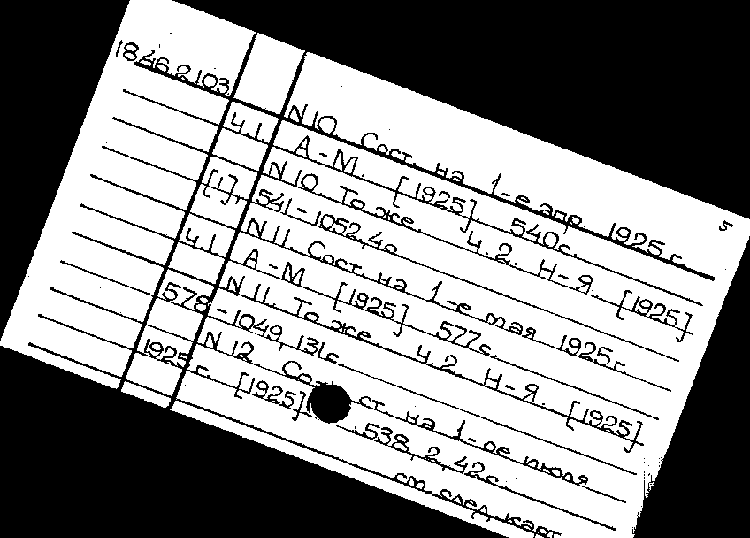 1846.2103
5
N 10. Сост. на 1-е апр. 1925 г.
Ч.1. А-М. [1925] 540с.
N 10. То же. Ч.2. Н-Я. [1925]
[1], 541-1052, 4с
N 11. Сост. на 1-е мая 1925г.
Ч.1 А-М [1925] 577с.
N 11. То же. Ч.2. Н-Я. [1925]
578-1049, 131с.
N 12 Сост. на 1-ое июля
1925г. [1925] 538, 2, 42с.
см. след. карт.